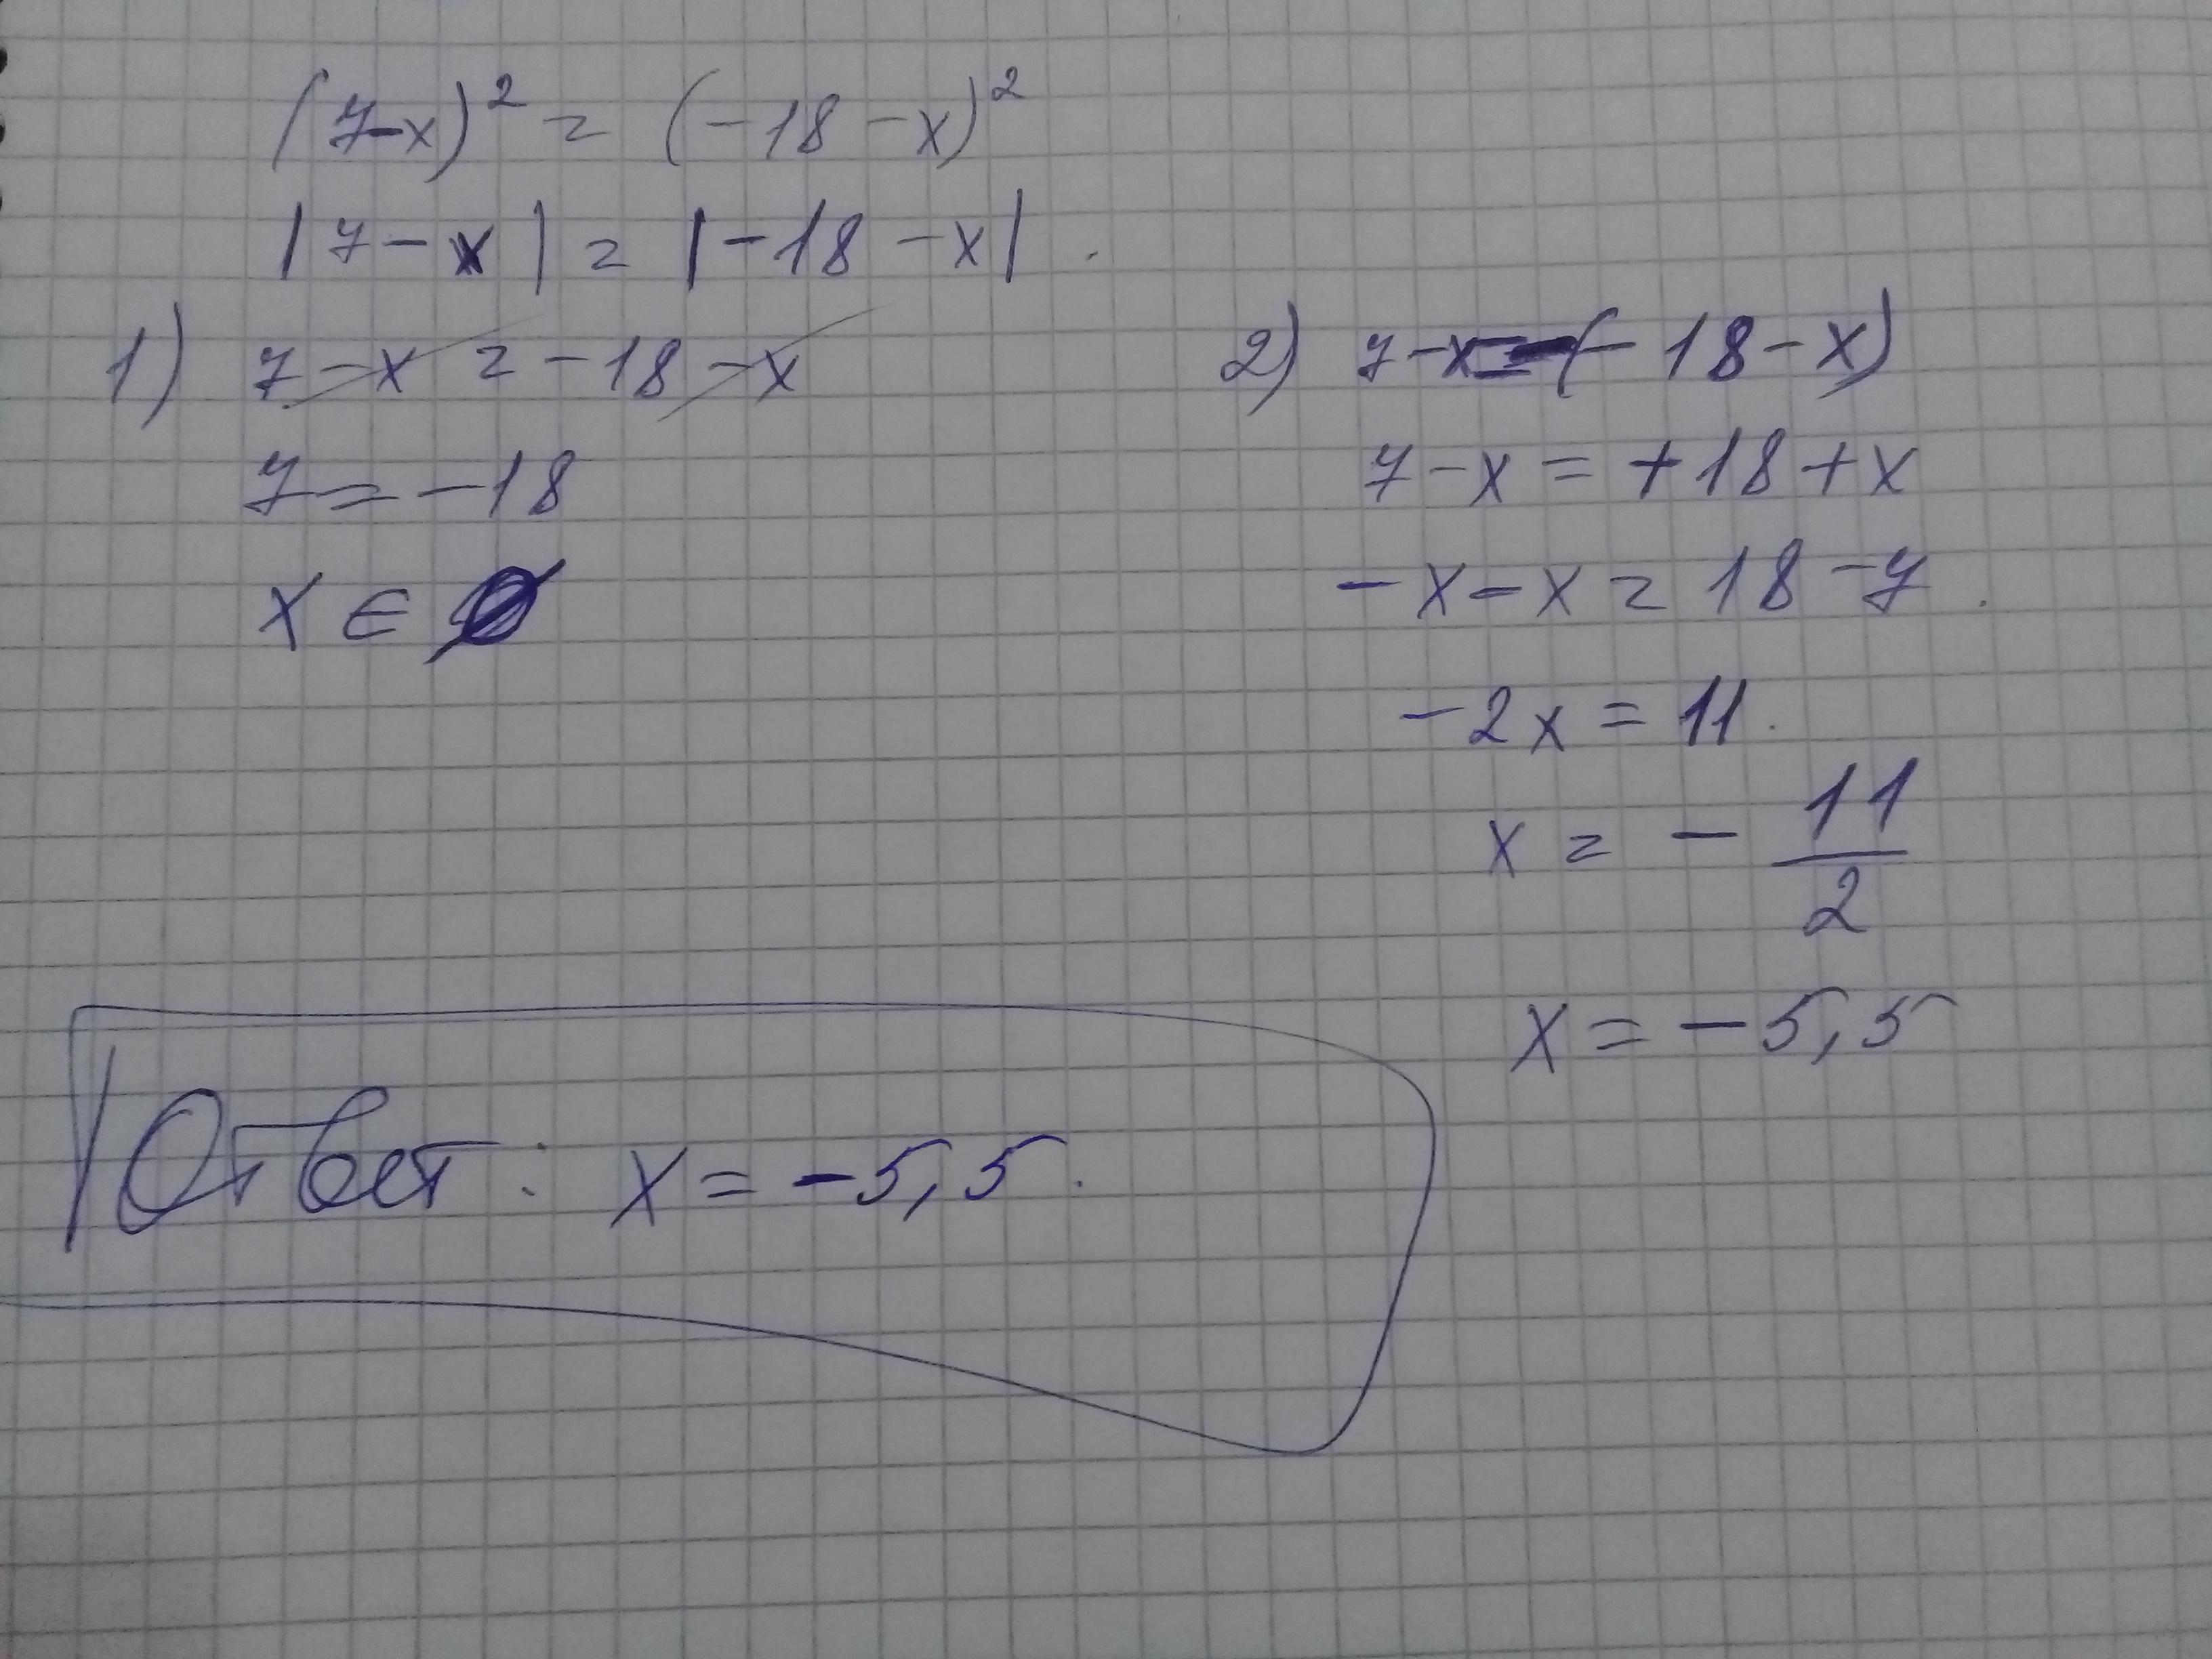 (7-x)² = (-18-x)²
|7-x| = |-18-x|.
1) 7-x = -18-x
7 = -18
x ∈ ∅
2) 7-x=-(-18-x)
7-x = +18+x
-x-x = 18-7.
-2x = 11.
x = - 11/2
x = -5,5
Ответ: x = -5,5.